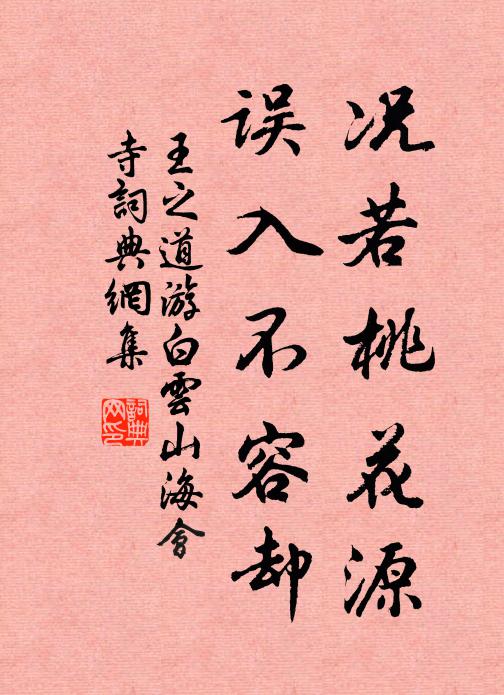 况若桃花源
误入不容却
王之道游白雲山海會
寺詞典網集
詞典
网印